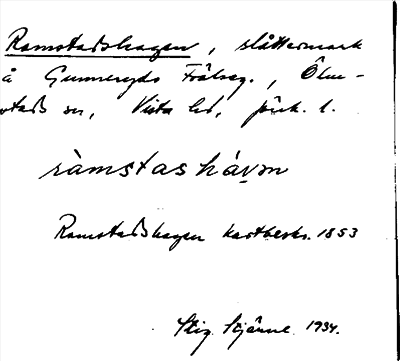 Ramstadshagen, slåttermark
å Gunneryds Frälseg., Ölm-
stad sn, Vista hd, Jönk. l.
ràmstashávɔn
Ramstadshagen kartbeskr. 1853
Stig Stjärne 1934.